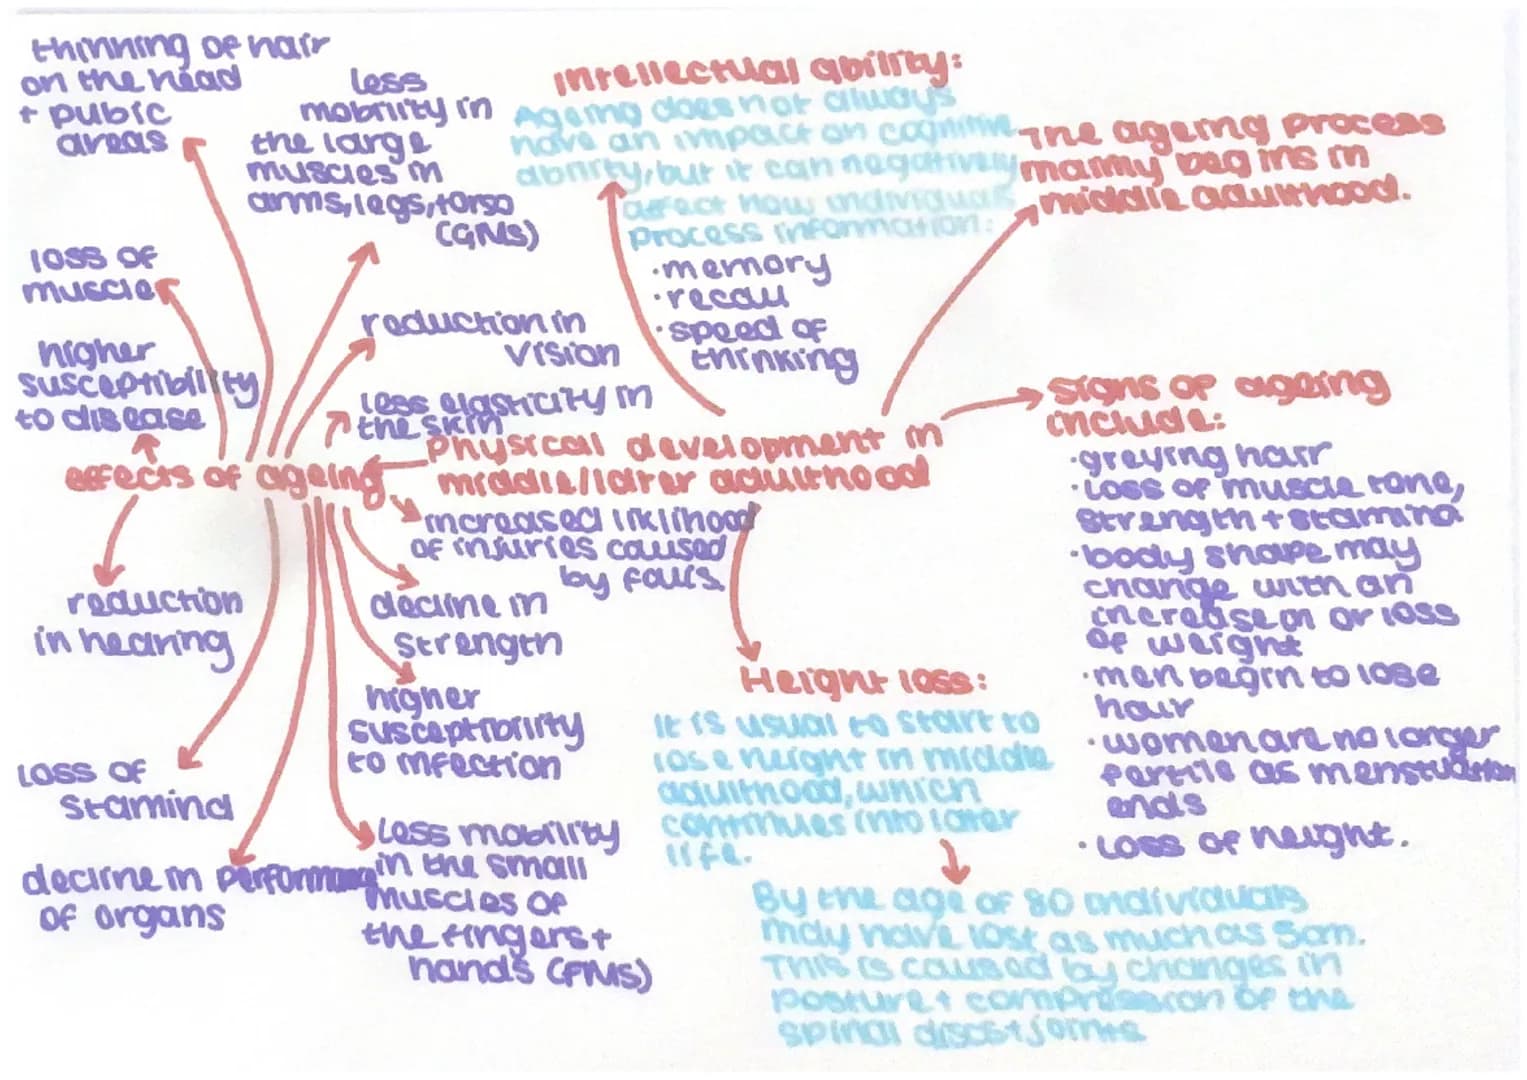 thinning of hair
on the head
+ pubic
areas
less
mobility in
the large
muscles in
arms, legs, torso
(GMS)
loss of
muscle
higher
susceptibility
to disease
reduction in
vision
less elasticity in
the skin
effects of ageing
Physical development in
middle/later adulthood
Intellectual ability:
Ageing does not always
have an impact on cognitive
ability, but it can negatively
affect how individuals
process information:
·memory
·recall
·speed of
thinking
The ageing process
mainly begins in
middle adulthood.
signs of ageing
include:
·greying hair
·Loss of muscle tone,
strength + stamina
·body shape may
change with an
increase in or loss
of weight
·men begin to lose
hair
·women are no longer
fertile as menstuation
ends
·Loss of height.
increased liklihood
of injuries caused
by falls.
reduction
in hearing
decline in
strength
higher
susceptibility
to infection
Loss of
stamina
decline in performance
of organs
Less mobility
in the small
muscles of
the fingers +
hands (FMS)
Height loss:
It is usual to start to
lose height in middle
adulthood, which
continues into later
life.
By the age of 80 individuals
may have lost as much as 5cm.
This is caused by changes in
posture + compression of the
spinal discs + joints